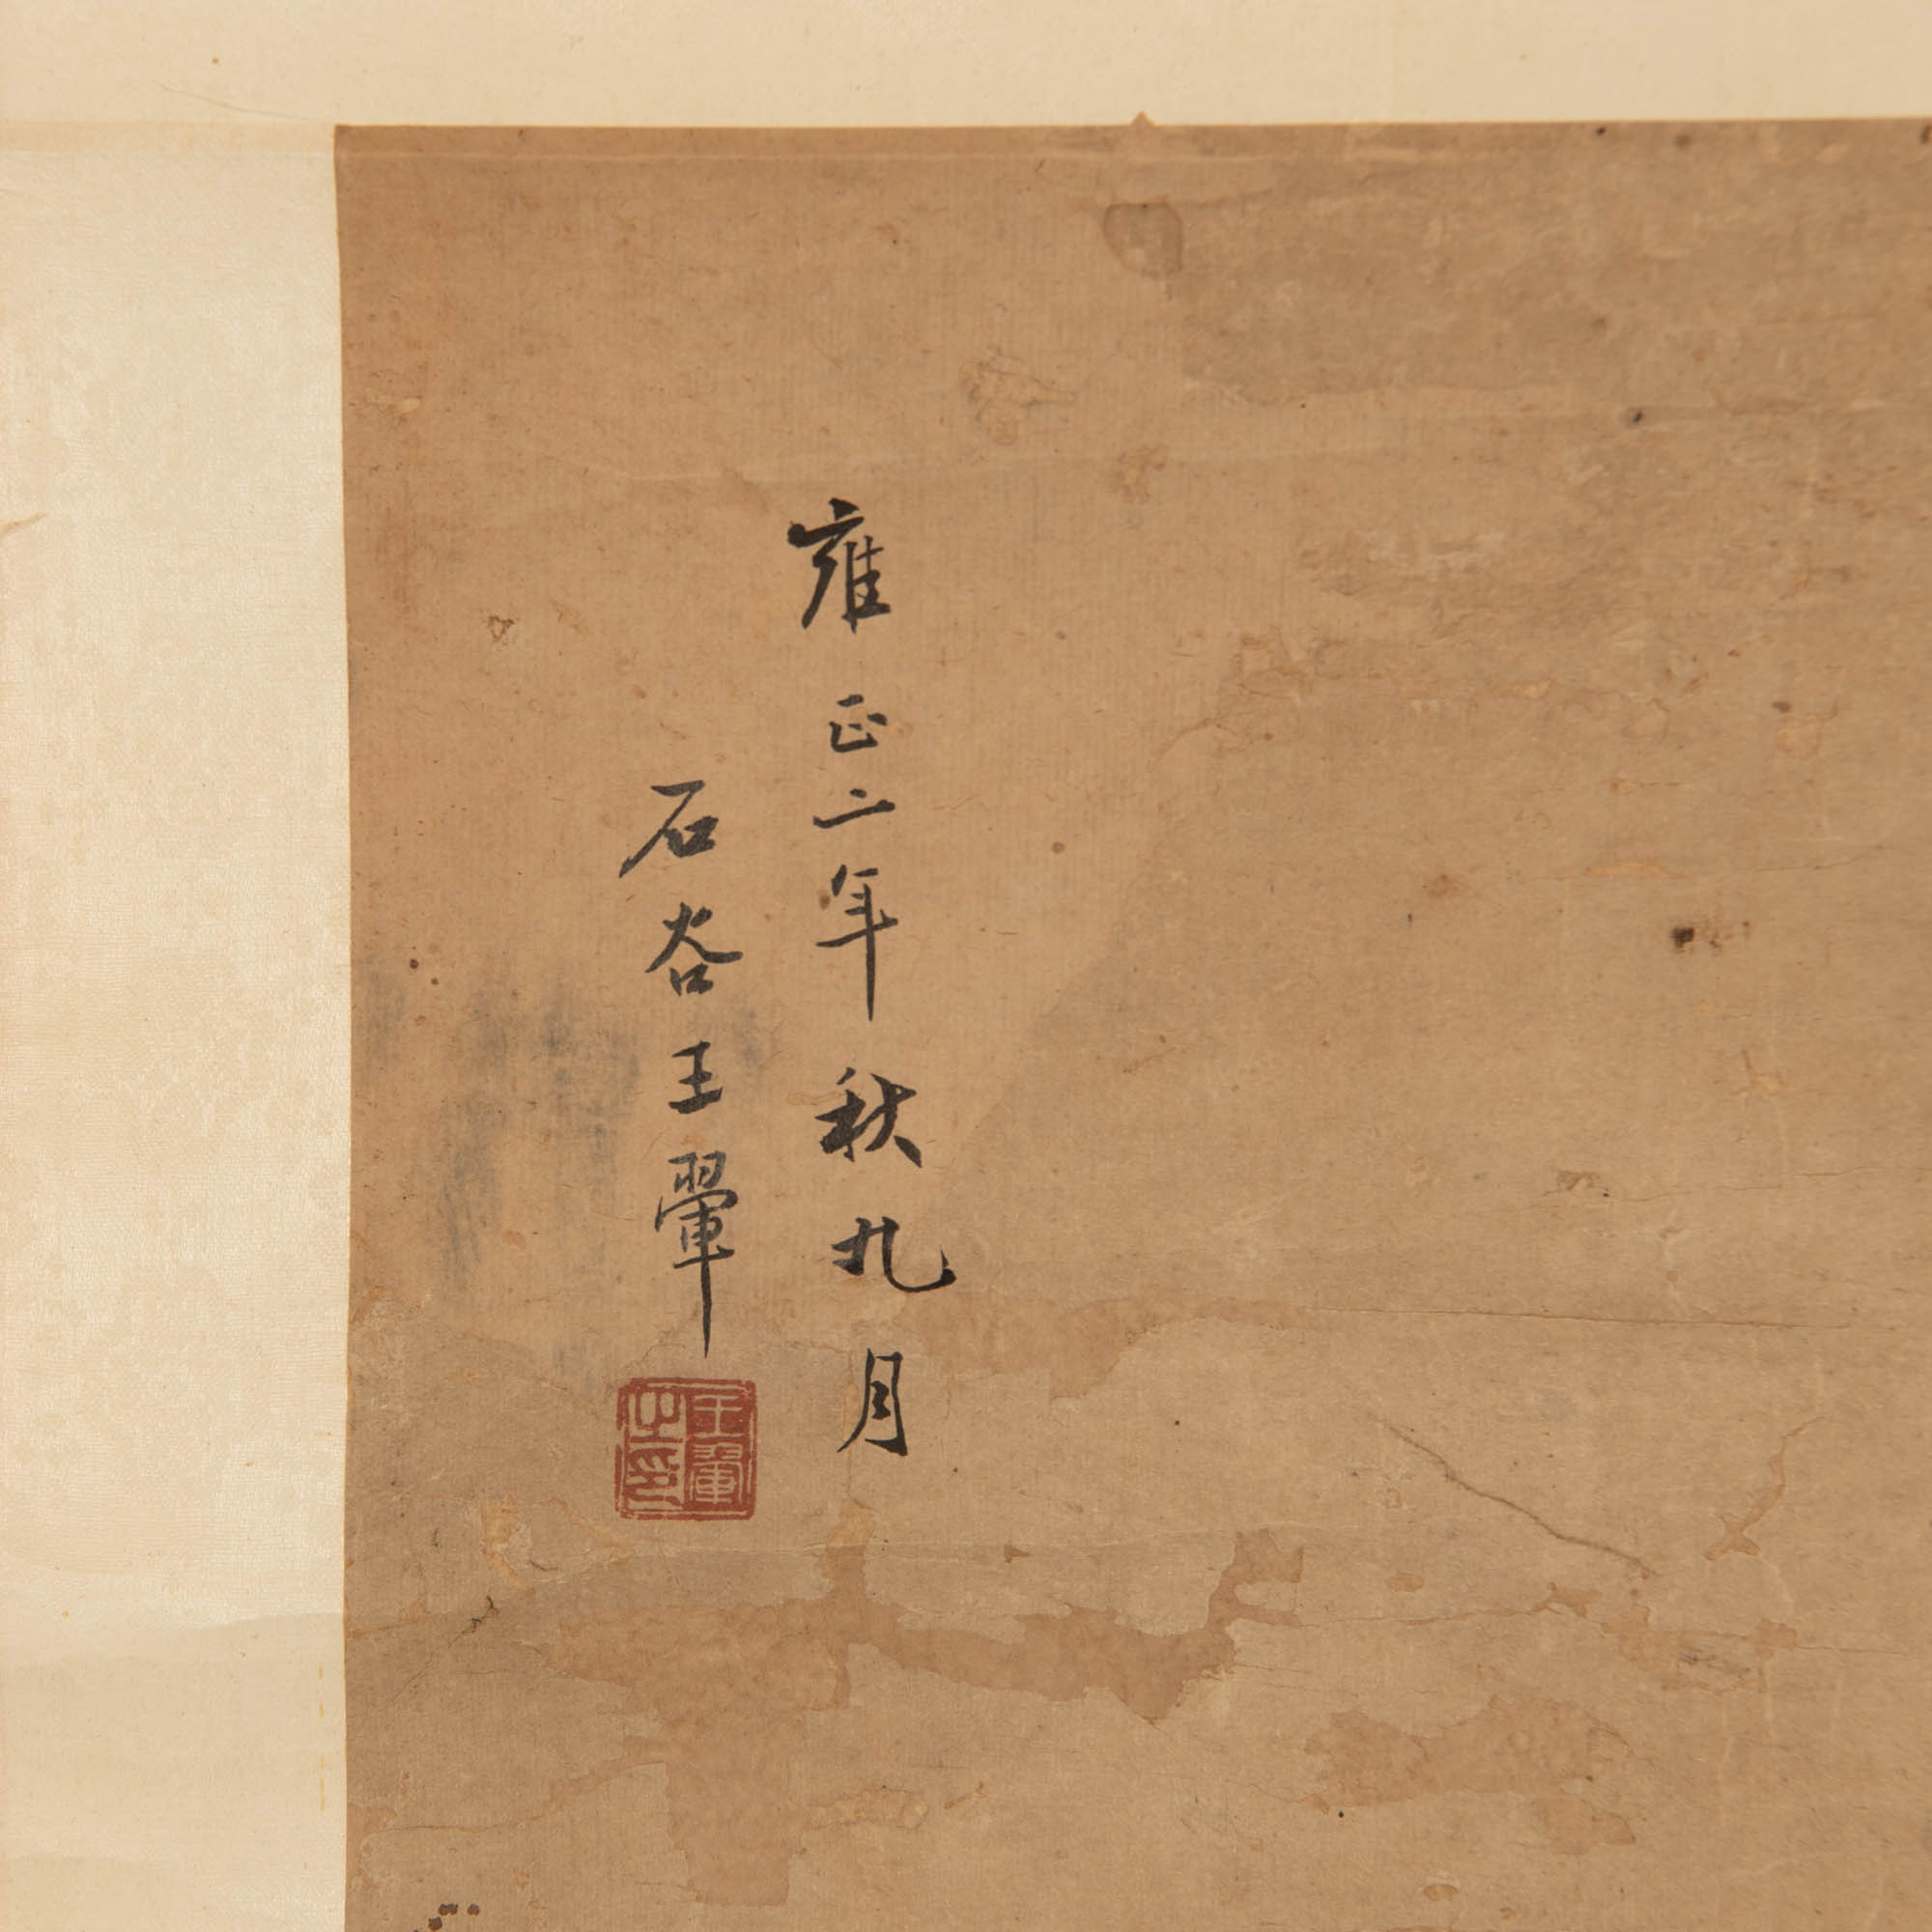 雍正二年秋九月
石谷王翬
王翬之印